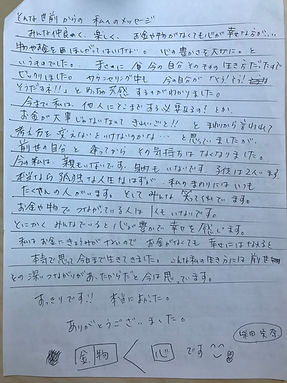 そんな前世からの 私へのメッセージ
みんな仲良く、楽しく、お金や物がなくても心が幸せなら
物やお金を追い求めてはいけない。心の豊かさを大切に。と
いうものでした。まさに 今の自分 そのものの生き方だったので
ビックリしました。カウンセリング中も 今の自分が
そうだネ!!」と めっちゃ共感 するのがわかりました。
今まで 私は、他人にどこまでお人好しなの! とか
お金が大事じゃないなんてきれいごと!! と まわりから言われて
考え方を変えないといけないのかな… と思っていましたが、
前世の自分と会ってから その気持ちはなくなりました。
今の私は、親もいないです。身内もいないです 子供は2人
本当なら 孤独な人生なはずが 私のまわりには いつも
たくさんの人がいます。そして みんな 笑ってくれています。
お金や物で つながっている人は 1人も いないです。
とにかく みんなでいると 心が豊かで 幸せを感じます。
私は お金に
本気で思い、今日まで生きてきました。こんな私の生き方には 前世
との深いつながりがあったからだと 今は思っています。
すっきりです!! 本当によかった。
ありがとうございました。
金 物 < 心 です